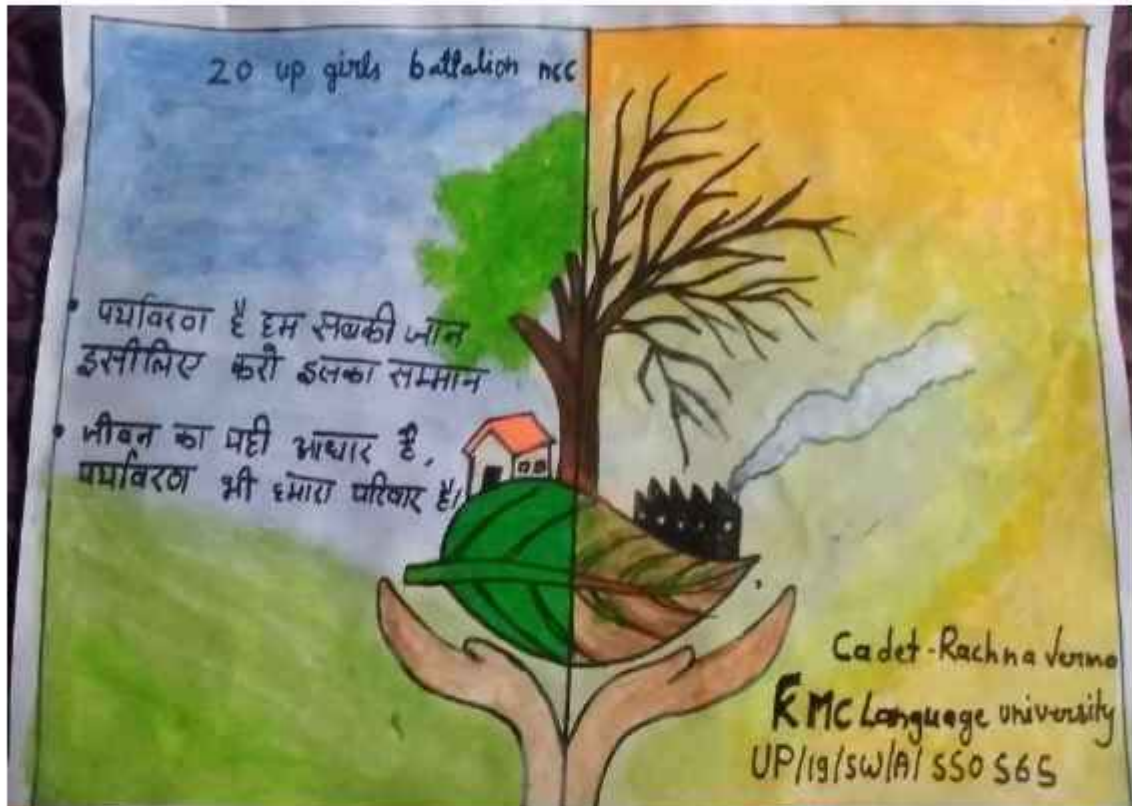 20 up girls battalion ncc
• पर्यावरण है हम सबकी जान
इसीलिए करो इसका सम्मान
• जीवन का यही आधार है,
पर्यावरण भी हमारा परिवार है।
Cadet-Rachna Verma
KMC Language university
UP/19/SW/A/550565